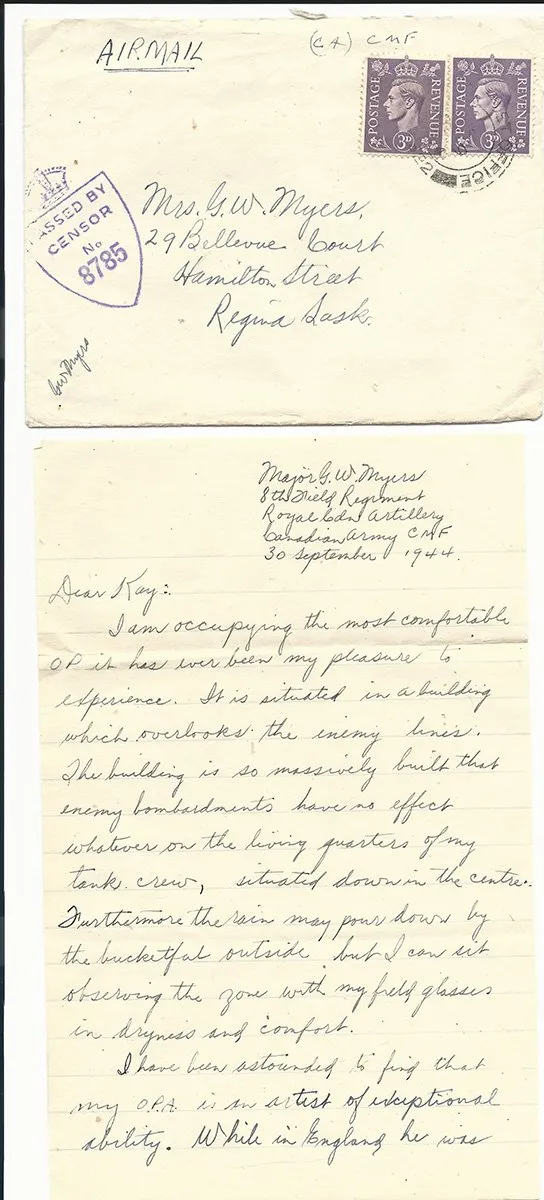 AIRMAIL
(CA) CMF
POSTAGE REVENUE 3D
POSTAGE REVENUE 3D
OFFICE
PASSED BY
CENSOR
No
8785
Mrs. G.W. Myers,
29 Bellevue Court
Hamilton Street
Regina Sask.
GW Myers
Major G.W. Myers
8th Field Regiment
Royal Cdn Artillery
Canadian Army CMF
30 September 1944.
Dear Kay:
I am occupying the most comfortable
OP it has ever been my pleasure to
experience. It is situated in a building
which overlooks the enemy lines.
The building is so massively built that
enemy bombardments have no effect
whatever on the living quarters of my
tank crew, situated down in the centre.
Furthermore the rain may pour down by
the bucketful outside but I can sit
observing the zone with my field glasses
in dryness and comfort.
I have been astounded to find that
my O.P.A. is an artist of exceptional
ability. While in England he was